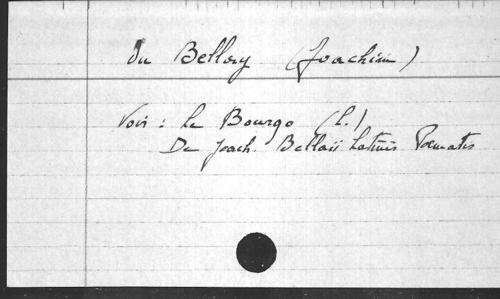 Du Bellay (Joachim)
Voir : Le Bourgo (L.)
De Joach. Bellaii Latinis Poematis